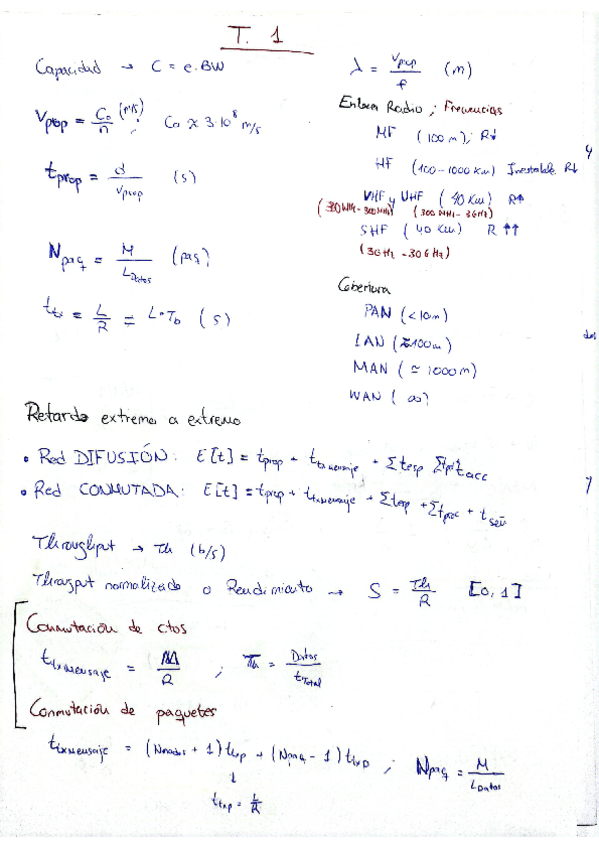 T. 1
Capacidad → C = e.BW
Vprop = Co/n (m/s) ; Co ≈ 3·10⁸ m/s
tprop = d/Vprop (s)
Npaq = M/LDatos (paq)
ttx = L/R = L·Tb (s)
λ = Vprop/f (m)
Enlace Radio ; Frecuencias
MF (100m); R↓
HF (100-1000 Km) Inestable R↓
VHF y UHF (40 Km) R↑
(30MHz-300MHz) (300MHz-3GHz)
SHF (40 Km) R ↑↑
(3GHz-30GHz)
Cobertura
PAN (<10m)
LAN (≈100m)
MAN (≃ 1000m)
WAN ( ∞)
Retardo extremo a extremo
• Red DIFUSIÓN: E[t] = tprop + ttxmensaje + Σtesp tacc
• Red CONMUTADA: E[t] = tprop + ttxmensaje + Σtesp + Σtproc + tseñ
Throughput → Th (b/s)
Througput normalizado o Rendimiento → S = Th/R [0,1]
Conmutación de ctos
ttxmensaje = M/R ; Th = Datos/tTotal
Conmutación de paquetes
ttxmensaje = (Nnodos + 1) ttxp + (Npaq - 1) ttxp ; Npaq = M/LDatos
↓
ttxp = L/R